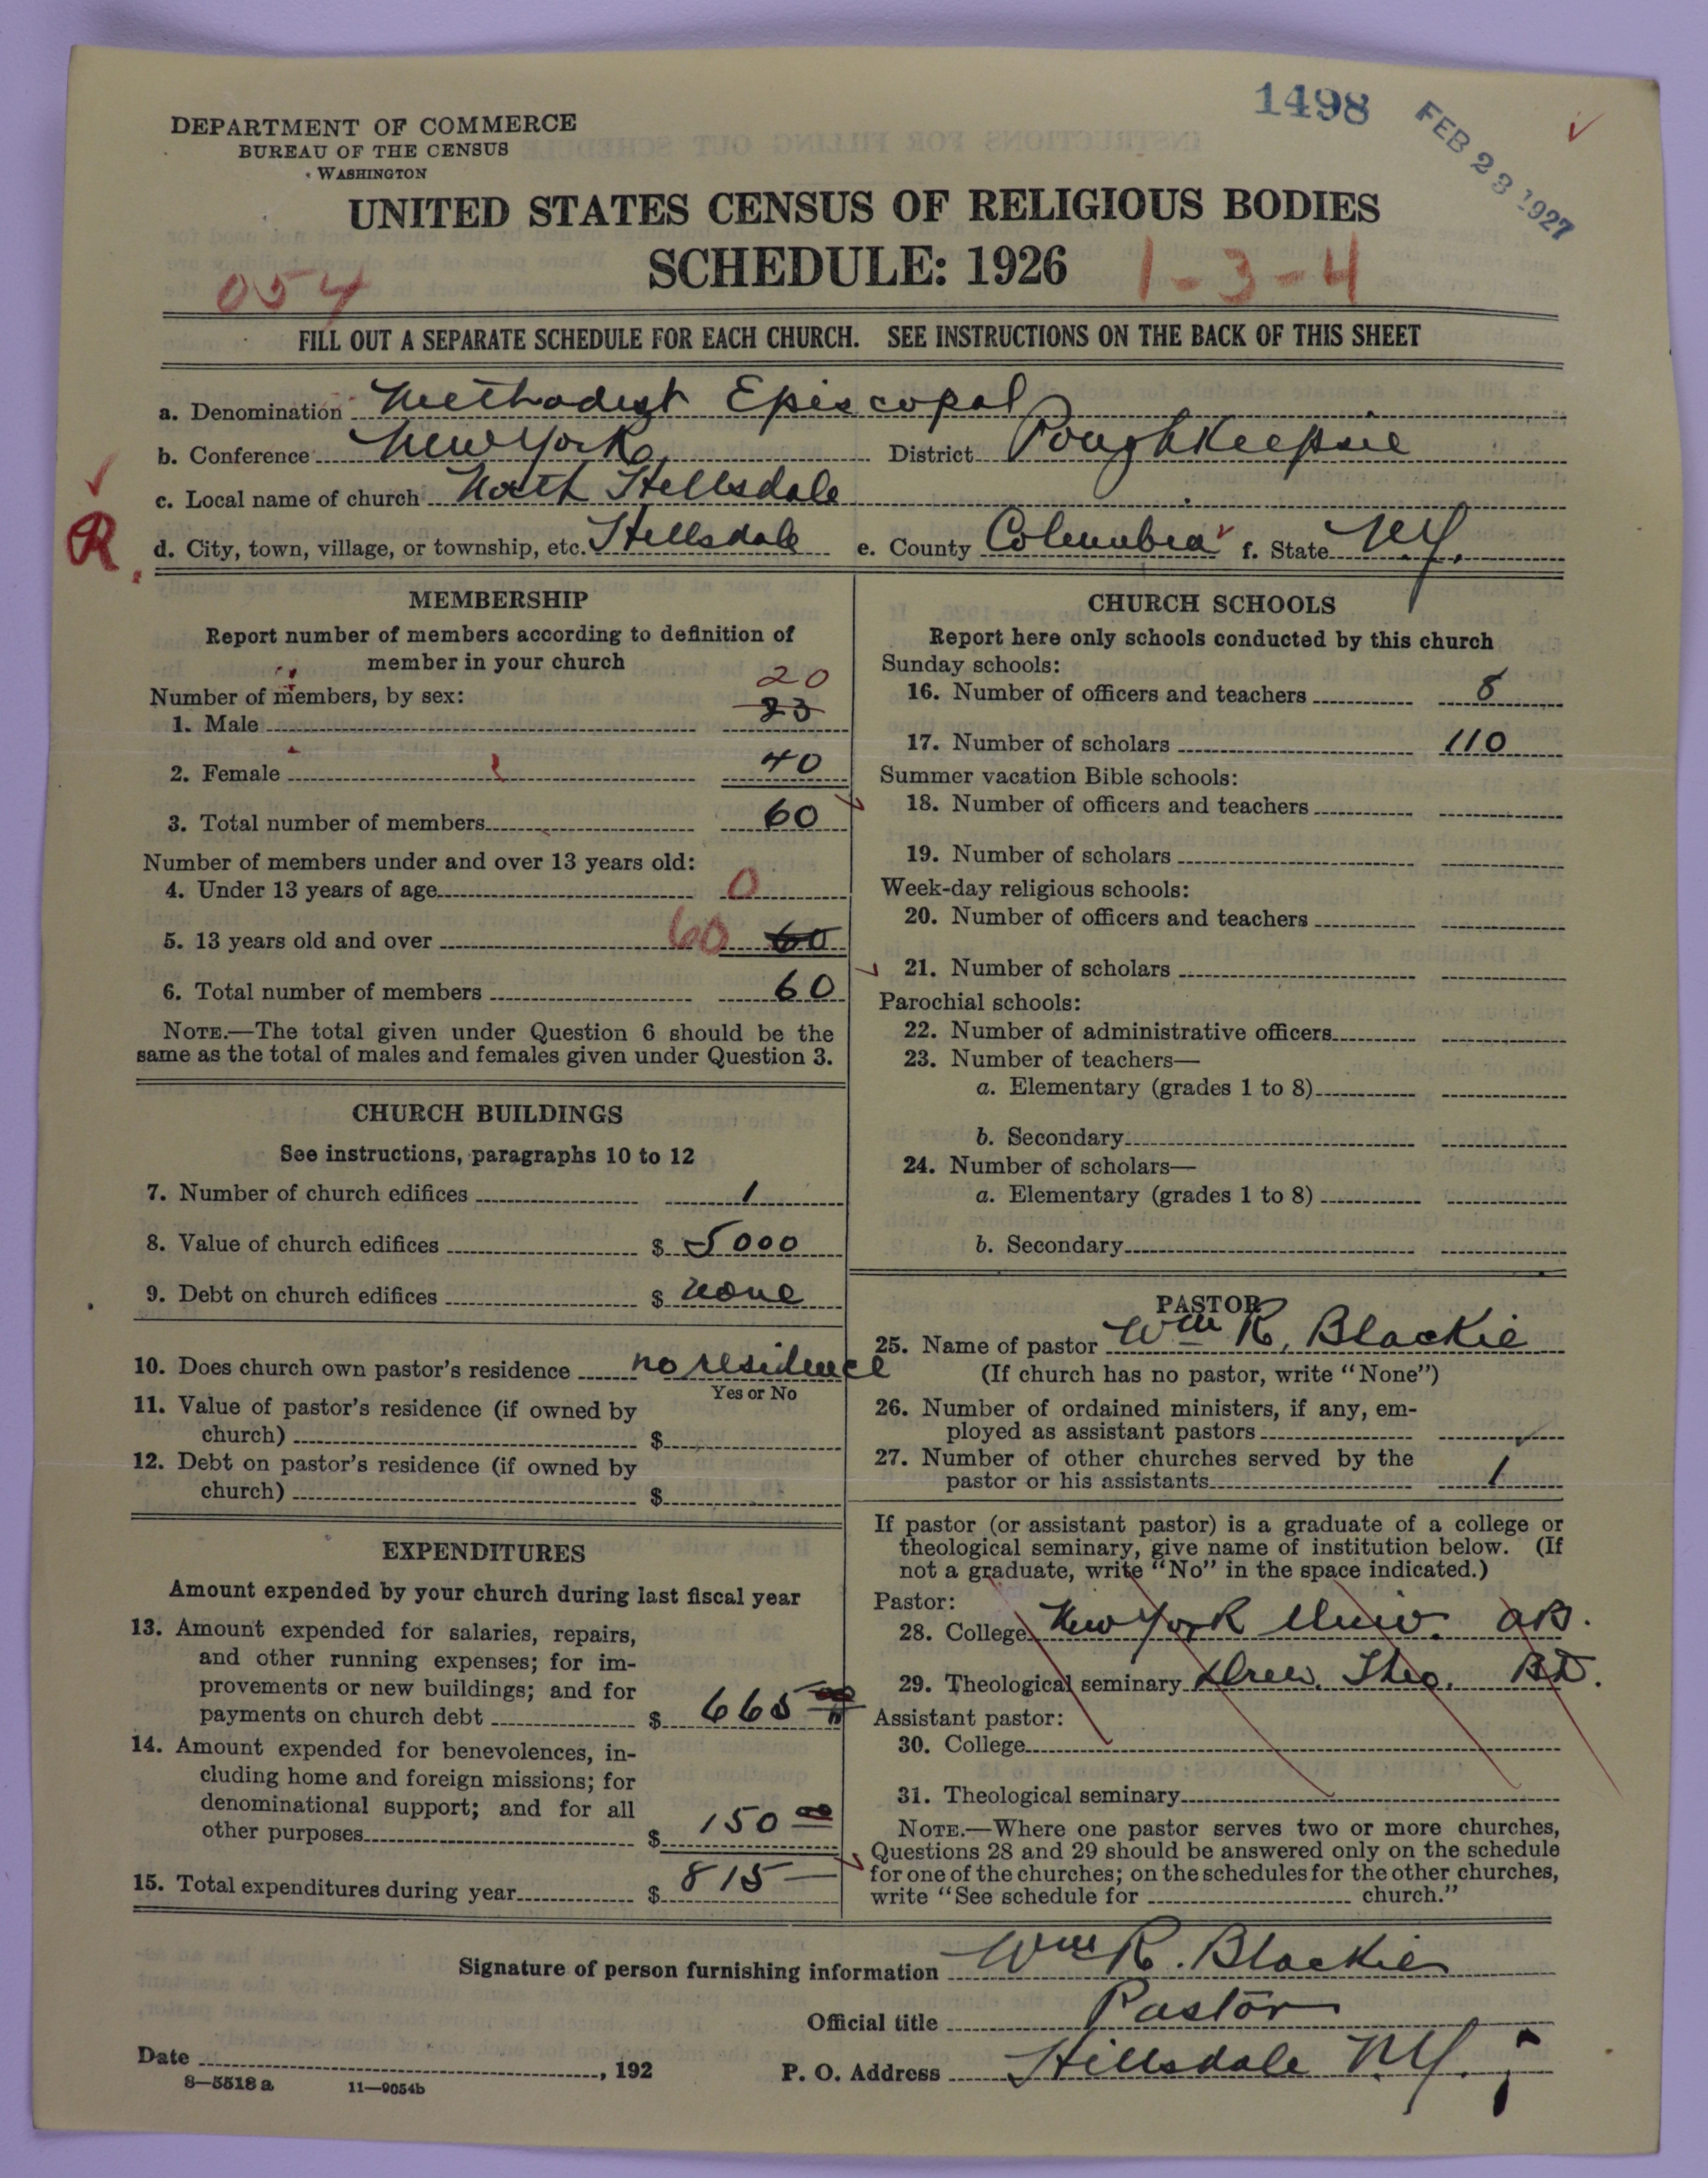 1498
FEB 23 1927
DEPARTMENT OF COMMERCE
BUREAU OF THE CENSUS
WASHINGTON
UNITED STATES CENSUS OF RELIGIOUS BODIES
SCHEDULE: 1926
054
1-3-4
FILL OUT A SEPARATE SCHEDULE FOR EACH CHURCH. SEE INSTRUCTIONS ON THE BACK OF THIS SHEET
a. Denomination Methodist Episcopal
b. Conference New York District Poughkeepsie
c. Local name of church North Hillsdale
R d. City, town, village, or township, etc. Hillsdale e. County Columbia f. State N.Y.
MEMBERSHIP
Report number of members according to definition of
member in your church
Number of members, by sex:
20
1. Male 23
2. Female 40
3. Total number of members 60
Number of members under and over 13 years old:
4. Under 13 years of age 0
5. 13 years old and over 60 60
6. Total number of members 60
NOTE.—The total given under Question 6 should be the
same as the total of males and females given under Question 3.
CHURCH BUILDINGS
See instructions, paragraphs 10 to 12
7. Number of church edifices 1
8. Value of church edifices $ 5000
9. Debt on church edifices $ none
10. Does church own pastor's residence no residence
Yes or No
11. Value of pastor's residence (if owned by
church) $
12. Debt on pastor's residence (if owned by
church) $
EXPENDITURES
Amount expended by your church during last fiscal year
13. Amount expended for salaries, repairs,
and other running expenses; for im-
provements or new buildings; and for
payments on church debt $ 665
14. Amount expended for benevolences, in-
cluding home and foreign missions; for
denominational support; and for all
other purposes $ 150 00
15. Total expenditures during year $ 815 —
CHURCH SCHOOLS
Report here only schools conducted by this church
Sunday schools:
16. Number of officers and teachers 8
17. Number of scholars 110
Summer vacation Bible schools:
18. Number of officers and teachers
19. Number of scholars
Week-day religious schools:
20. Number of officers and teachers
21. Number of scholars
Parochial schools:
22. Number of administrative officers
23. Number of teachers—
a. Elementary (grades 1 to 8)
b. Secondary
24. Number of scholars—
a. Elementary (grades 1 to 8)
b. Secondary
PASTOR
25. Name of pastor Wm R. Blackie
(If church has no pastor, write "None")
26. Number of ordained ministers, if any, em-
ployed as assistant pastors
27. Number of other churches served by the
pastor or his assistants 1
If pastor (or assistant pastor) is a graduate of a college or
theological seminary, give name of institution below. (If
not a graduate, write "No" in the space indicated.)
Pastor:
28. College New York Univ. AB.
29. Theological seminary Drew. Theo. BD.
Assistant pastor:
30. College
31. Theological seminary
NOTE.—Where one pastor serves two or more churches,
Questions 28 and 29 should be answered only on the schedule
for one of the churches; on the schedules for the other churches,
write "See schedule for church."
Signature of person furnishing information Wm R. Blackie
Official title Pastor
Date , 192
P. O. Address Hillsdale N.Y.
8—5518 a 11—9054b